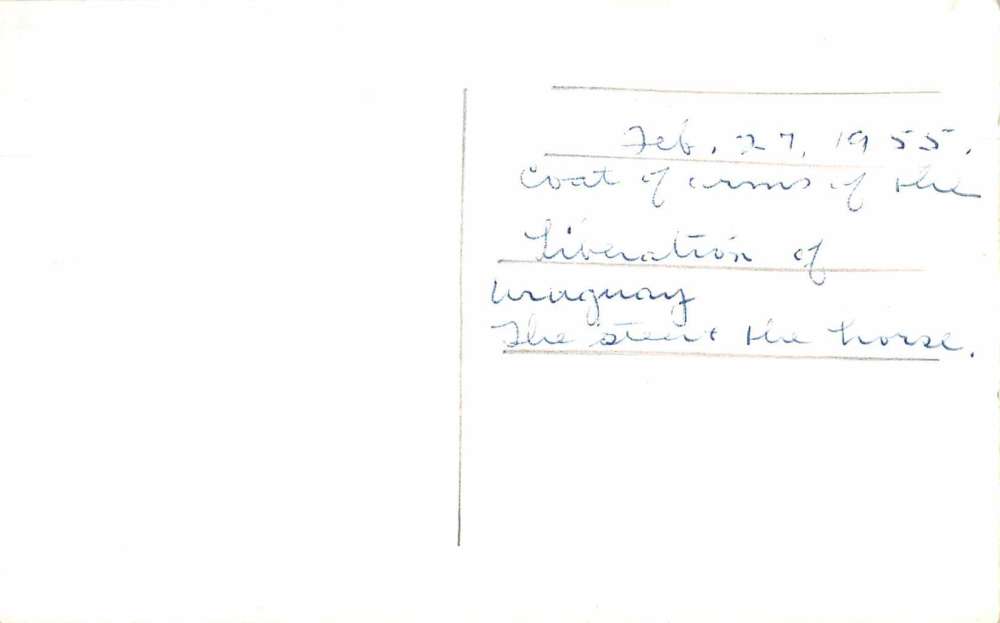 Feb. 27, 1955.
Coat of arms of the
Liberation of
Uruguay
The steer & the horse.